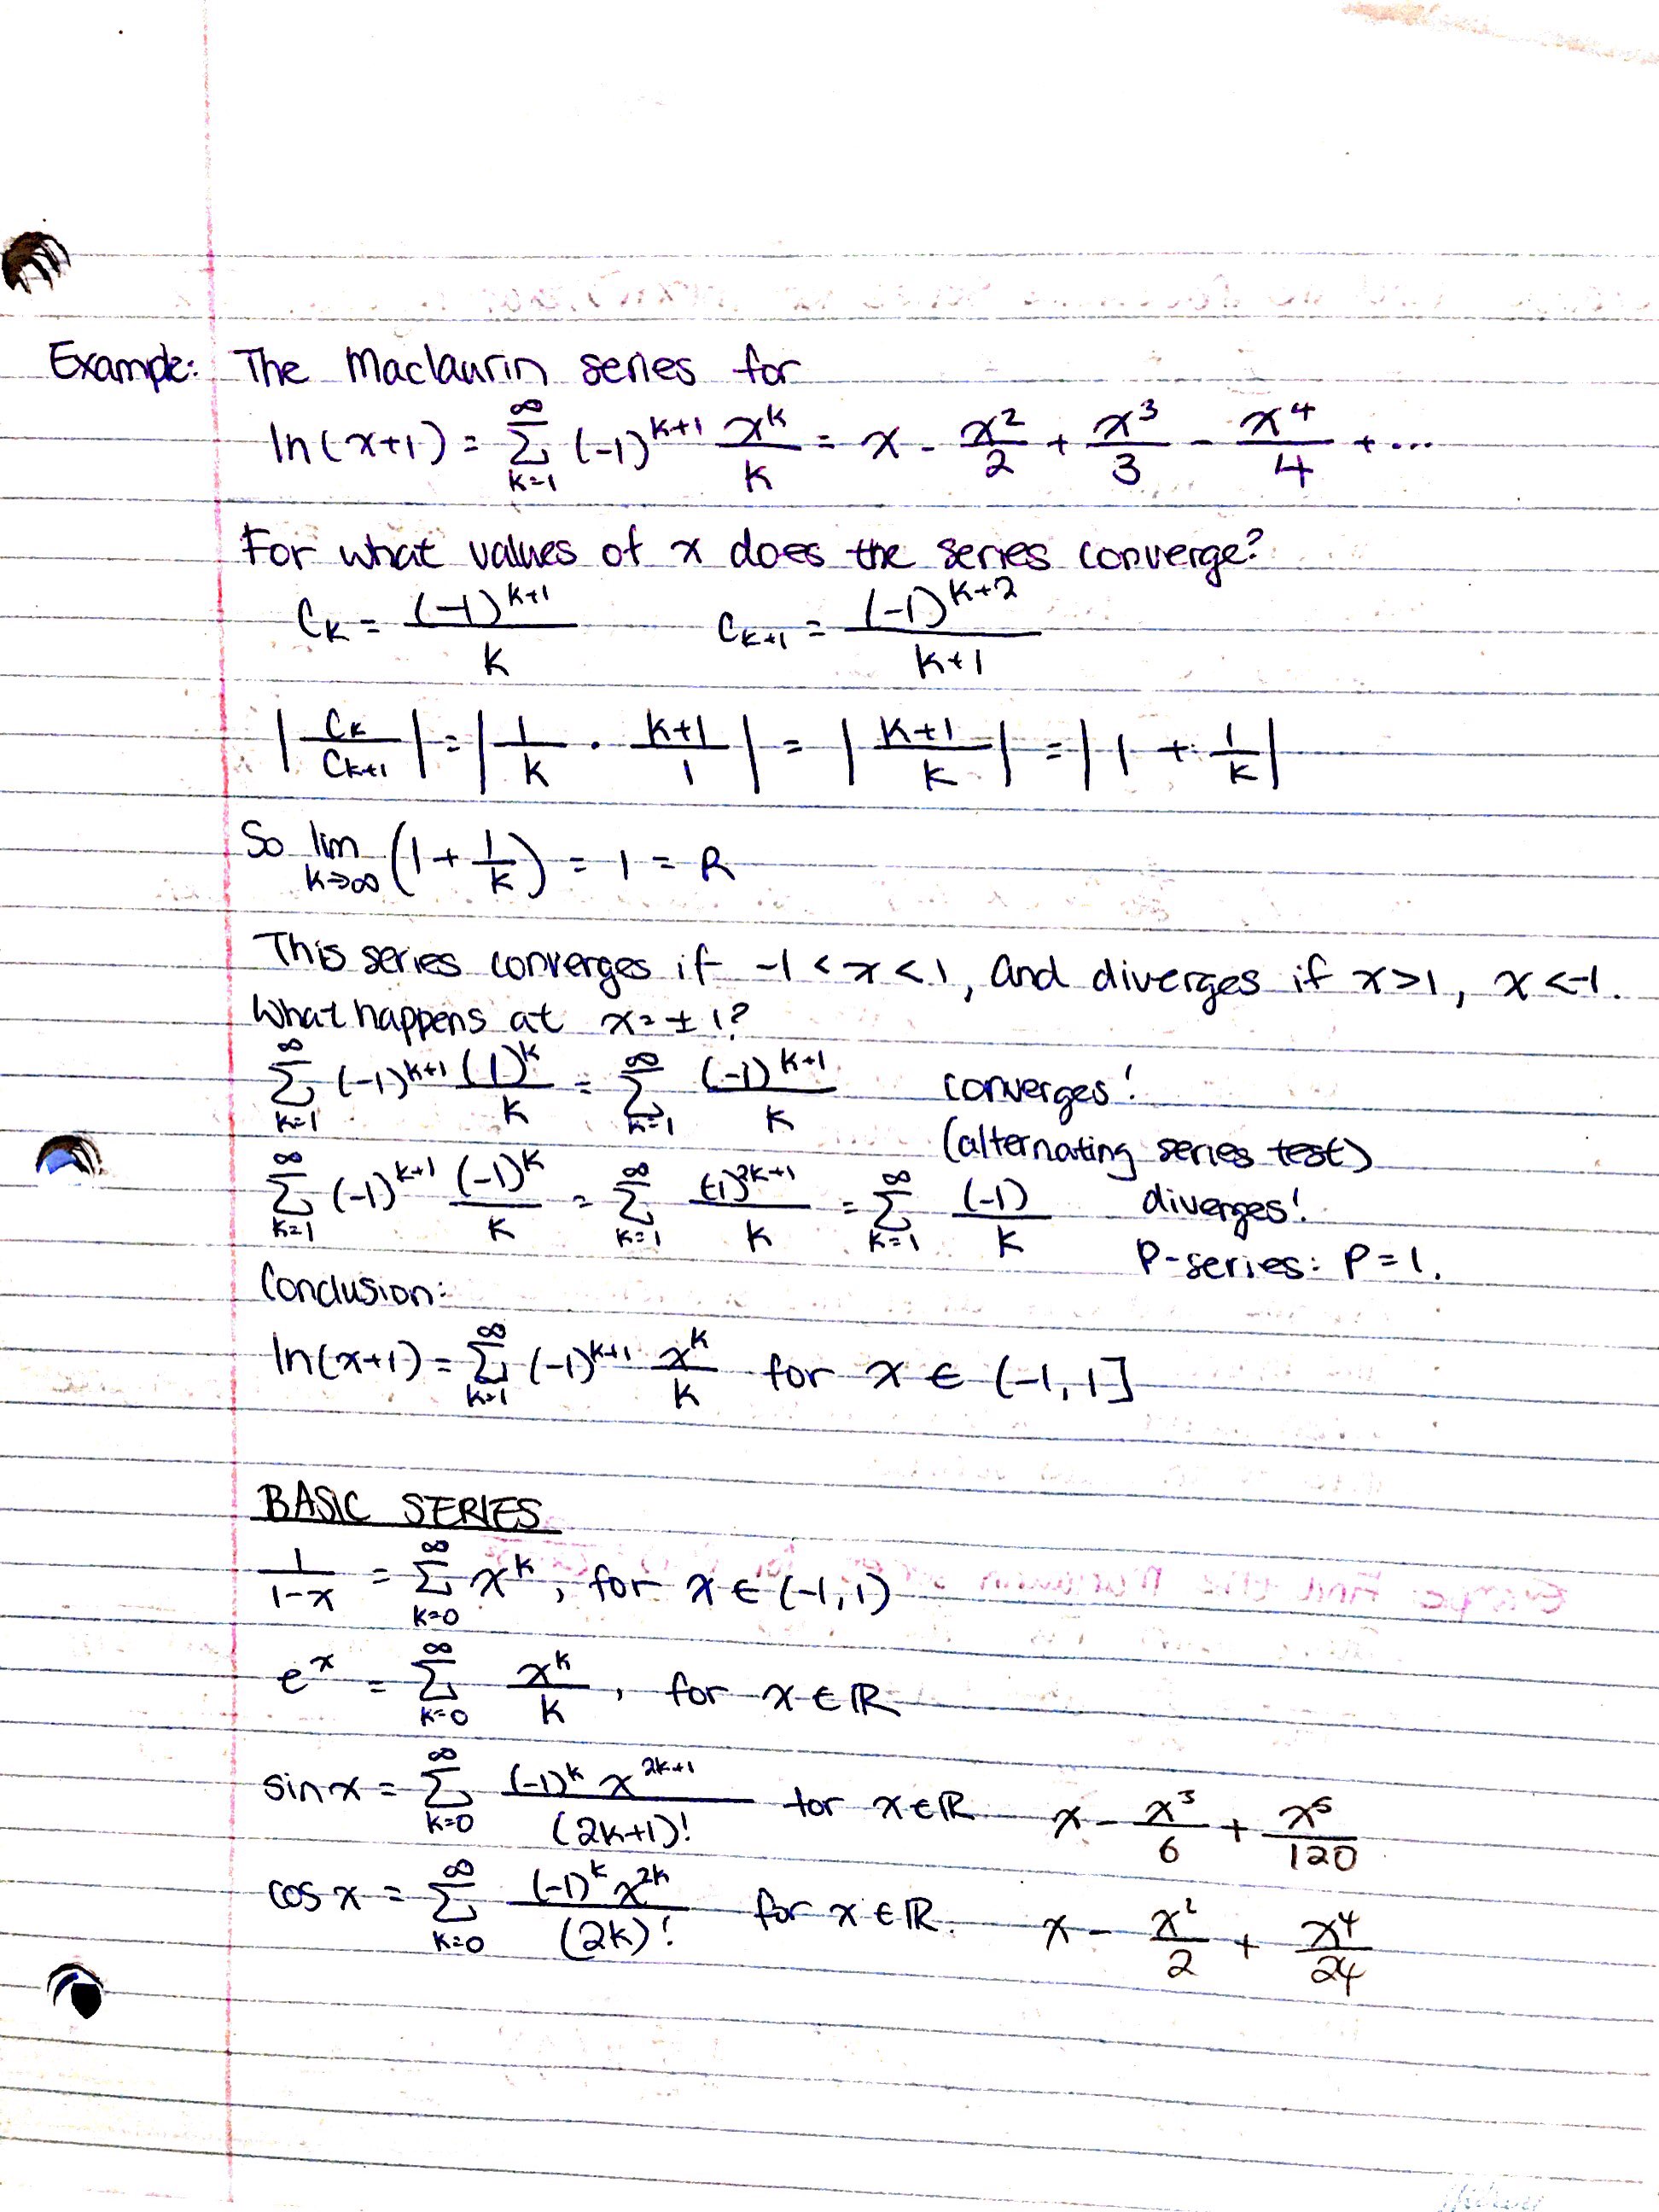 Example: The Maclaurin series for
ln(x+1) = ∑_{k=1}^{∞} (-1)^{k+1} x^k/k = x - x²/2 + x³/3 - x⁴/4 + ...
For what values of x does the series converge?
C_k = (-1)^{k+1}/k    C_{k+1} = (-1)^{k+2}/(k+1)
|C_k/C_{k+1}| = |1/k · (k+1)/1| = |(k+1)/k| = |1 + 1/k|
So lim_{k→∞} (1 + 1/k) = 1 = R
This series converges if -1 < x < 1, and diverges if x > 1, x < -1.
What happens at x = ± 1?
∑_{k=1}^{∞} (-1)^{k+1} (1)^k/k = ∑_{k=1}^{∞} (-1)^{k+1}/k    converges!
(alternating series test)
∑_{k=1}^{∞} (-1)^{k+1} (-1)^k/k = ∑_{k=1}^{∞} (-1)^{2k+1}/k = ∑_{k=1}^{∞} (-1)/k    diverges!
P-series: P = 1.
Conclusion:
ln(x+1) = ∑_{k=1}^{∞} (-1)^{k+1} x^k/k for x ∈ (-1, 1]
BASIC SERIES
1/(1-x) = ∑_{k=0}^{∞} x^k, for x ∈ (-1, 1)
e^x = ∑_{k=0}^{∞} x^k/k, for x ∈ ℝ
sin x = ∑_{k=0}^{∞} (-1)^k x^{2k+1}/(2k+1)! for x ∈ ℝ    x - x³/6 + x⁵/120
cos x = ∑_{k=0}^{∞} (-1)^k x^{2k}/(2k)! for x ∈ ℝ.    x - x²/2 + x⁴/24